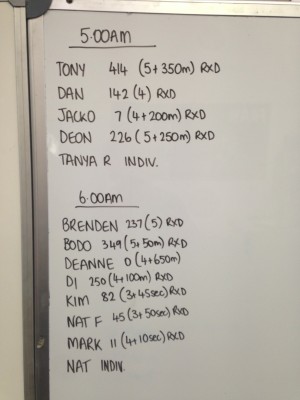 5:00AM
TONY 414 (5+350m) RXD
DAN 142 (4) RXD
JACKO 7 (4+200m) RXD
DEON 226 (5+250m) RXD
TANYA R INDIV.
6:00AM
BRENDEN 237 (5) RXD
BODO 349 (5+50m) RXD
DEANNE 0 (4+650m)
DI 250 (4+100m) RXD
KIM 82 (3+45sec) RXD
NAT F 45 (3+50sec) RXD
MARK 11 (4+10sec) RXD
NAT INDIV.